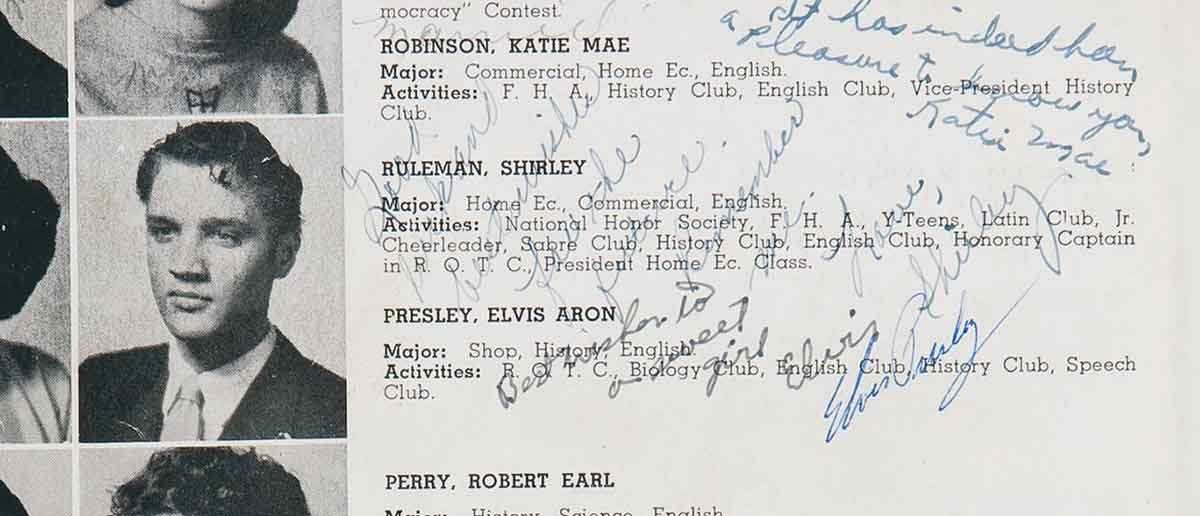 mocracy" Contest.
ROBINSON, KATIE MAE
Major: Commercial, Home Ec., English.
Activities: F. H. A., History Club, English Club, Vice-President History
Club.
It has indeed been
a pleasure to
know you,
Katie Mae
RULEMAN, SHIRLEY
Major: Home Ec., Commercial, English.
Activities: National Honor Society, F. H. A., Y-Teens, Latin Club, Jr.
Cheerleader, Sabre Club, History Club, English Club, Honorary Captain
in R. O. T. C., President Home Ec. Class.
remember
me
Love,
Shirley
PRESLEY, ELVIS ARON
Major: Shop, History, English.
Activities: R. O. T. C., Biology Club, English Club, History Club, Speech
Club.
Best wishes to
a sweet
girl Elvis
Elvis Presley
PERRY, ROBERT EARL
Major: History, Science, English.